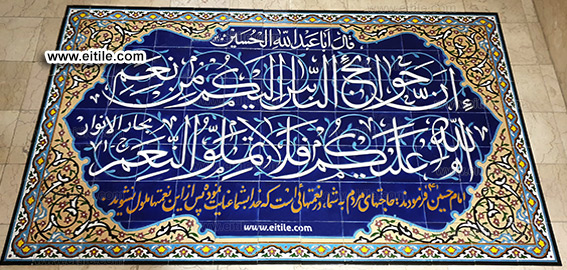 www.eitile.com
قال اباعبدالله الحسین
إن حوائج الناس إلیکم من نعم
الله علیکم فلا تملوا النعم
بحار الانوار
امام حسین (ع) فرمودند: حاجتهای مردم به شما، در نعمتهائی است که خدا بشما عنایت نموده پس از این نعمتها ملول نشوید
www.eitile.com